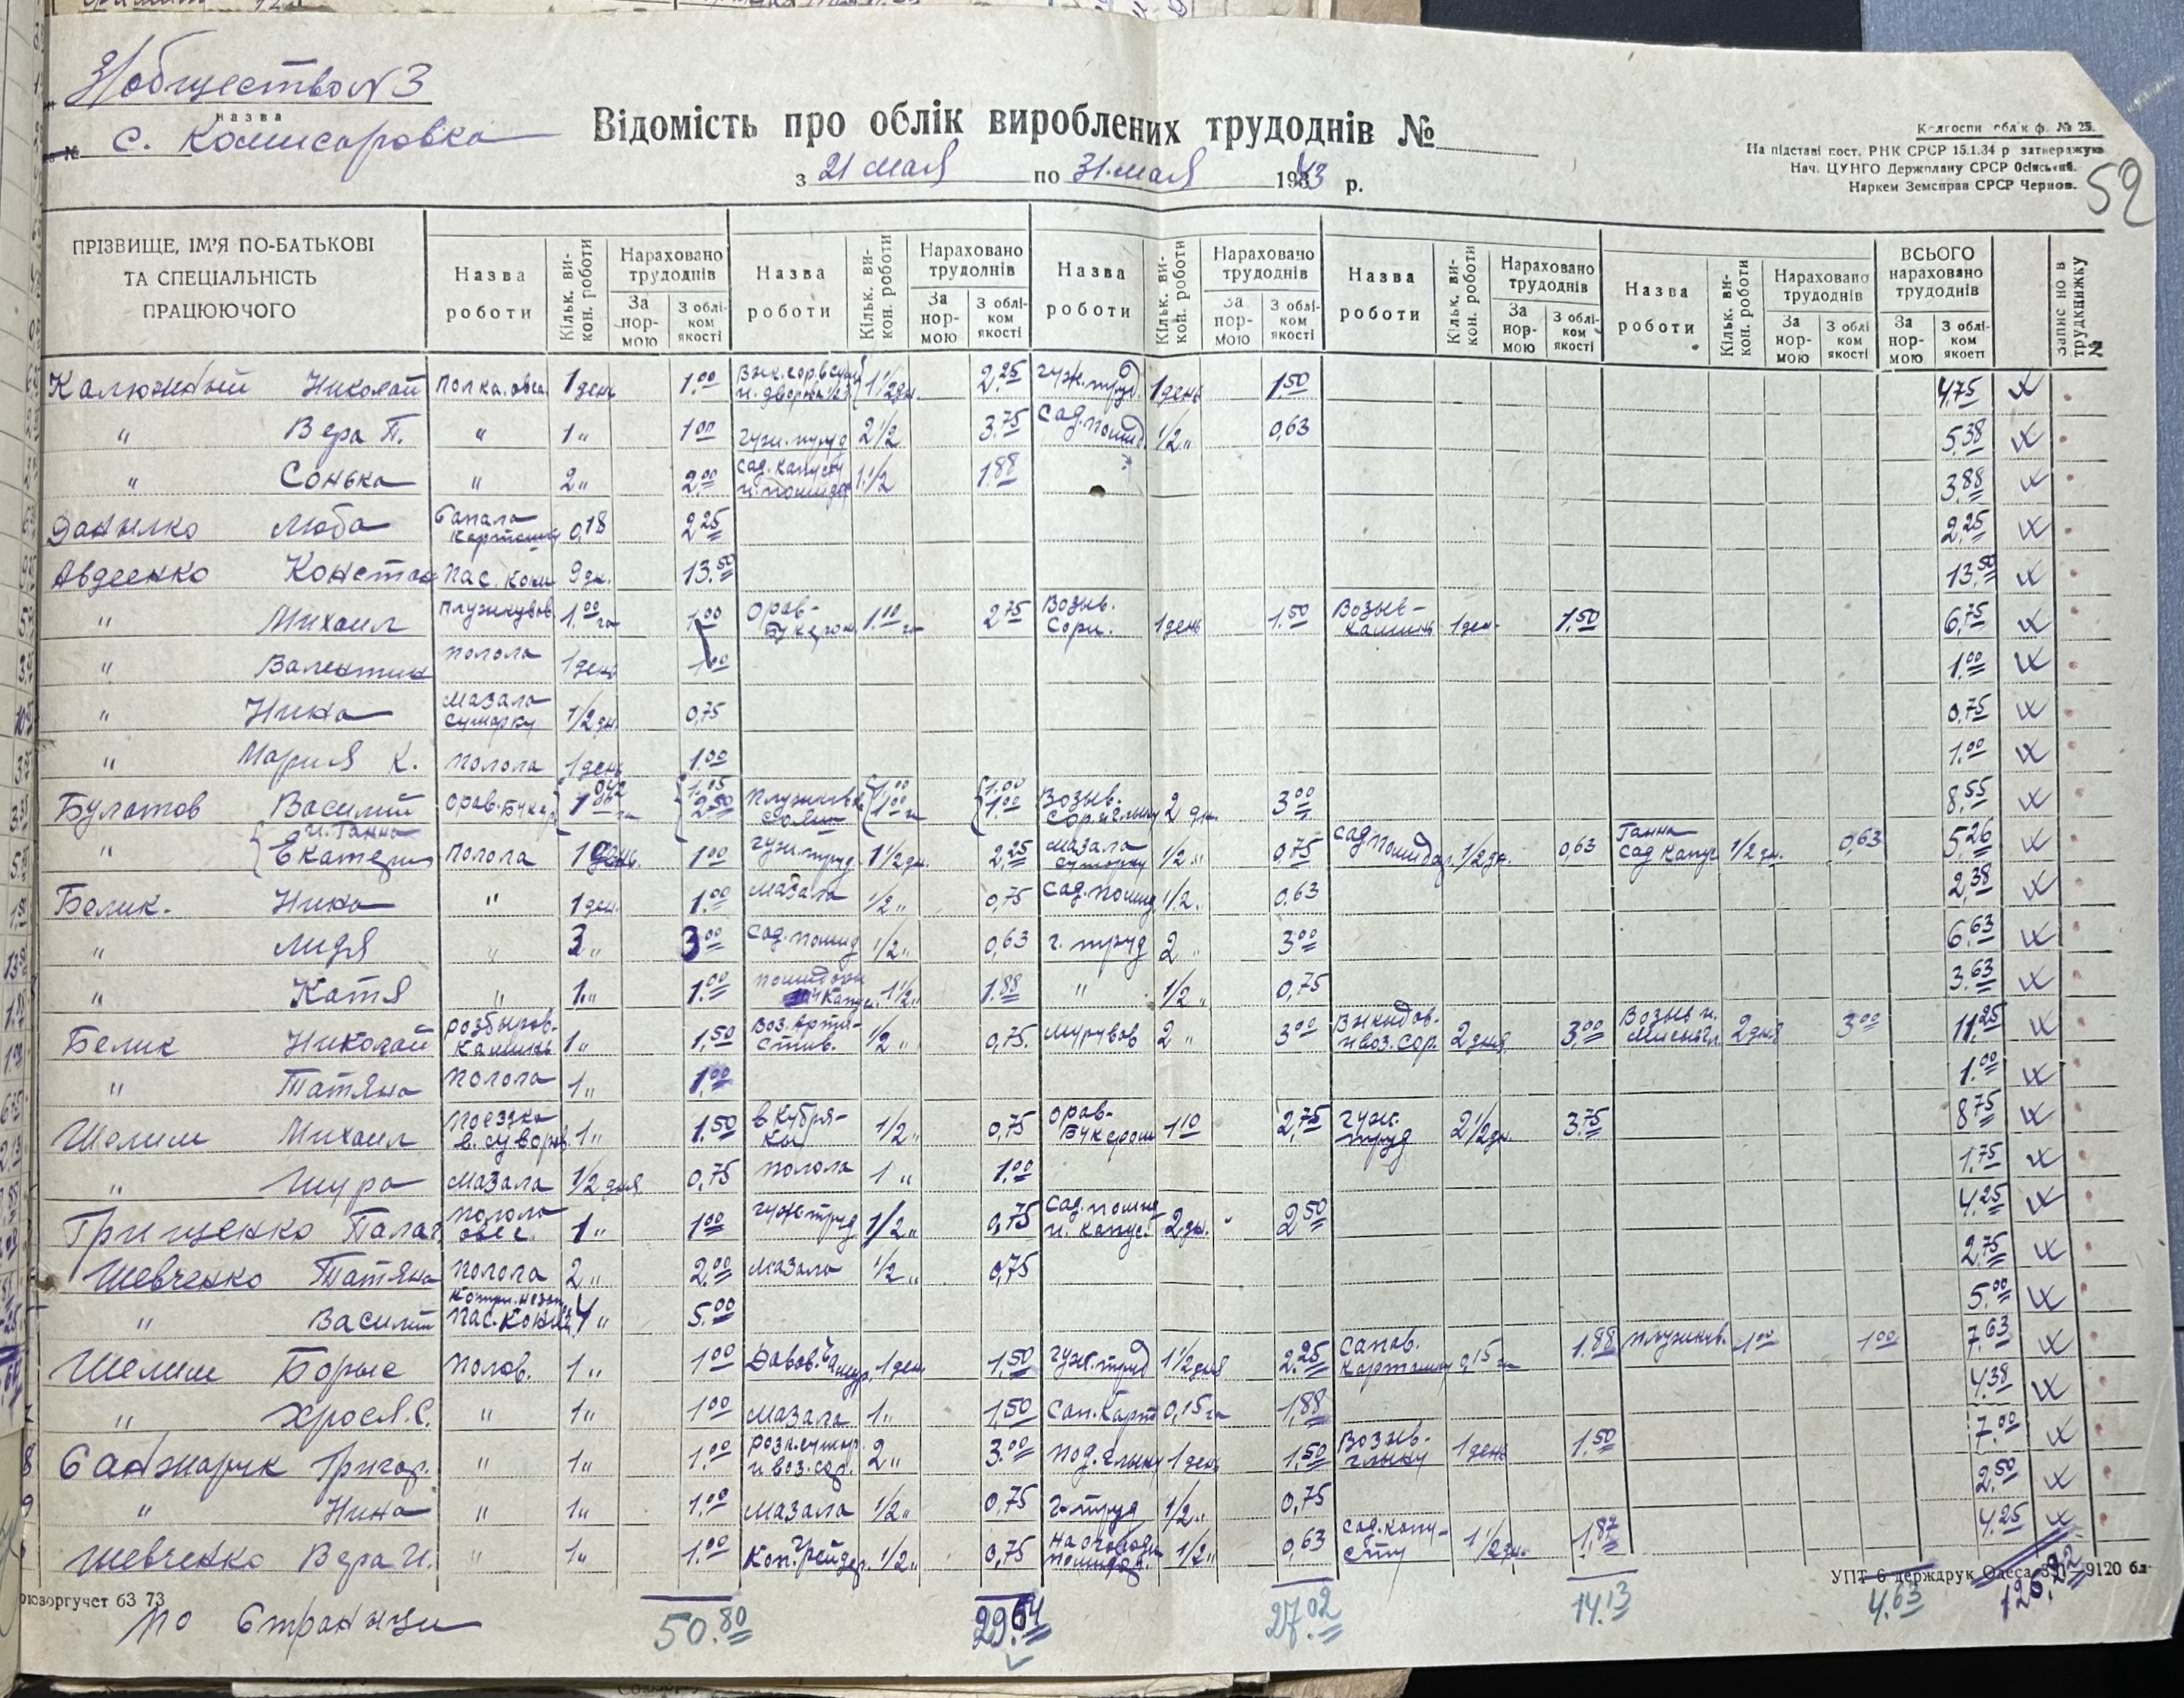 З/общество N3
назва
с. Комисаровка
Відомість про облік вироблених трудоднів №
з 21 мая по 31 мая 1943 р.
Колгоспи обл'к ф. № 25.
На підставі пост. РНК СРСР 15.1.34 р затверджую
Нач. ЦУНГО Держплану СРСР Осінський.
Наркем Земсправ СРСР Чернов.
52
ПРІЗВИЩЕ, ІМ'Я ПО-БАТЬКОВІ ТА СПЕЦІАЛЬНІСТЬ ПРАЦЮЮЧОГО
Назва роботи Кільк. викон. роботи Нараховано трудоднів За нормою З обліком якості
Назва роботи Кільк. викон. роботи Нараховано трудолнів За нормою З обліком якості
Назва роботи Кільк. викон. роботи Нараховано трудоднів За нормою З обліком якості
Назва роботи Кільк. викон. роботи Нараховано трудоднів За нормою З обліком якості
Назва роботи Кільк. викон. роботи Нараховано трудоднів За нормою З облі ком якості
ВСЬОГО нараховано трудоднів За нормою З обліком якості
Запис но в трудкнижку №
Калюжный Николай 1 день 1.00 1 1/2 дн. 2,25 гуж. труд 1 день 1.50 4,75
" Вера П. " 1 " 1.00 гуж. труд 2 1/2 3,75 сад. помид. 1/2 " 0,63 5.38
" Сонька " 2 " 2.00 сад. капусту и. помидор 1 1/2 1.88 3.88
Данылко Люба сапала картошку 0,18 2,25 2,25
Авдеенко Констан пас. кони 9 дн. 13.50 13.50
" Михаил 1.00 га 1.00 орав. букером 1.10 га 2,75 Возыв. сорн. 1 день 1.50 Возыв. каминь 1 ден. 1.50 6,75
" Валентин полола 1 день 1.00 1.00
" Нина мазала 1/2 дн. 0,75 0,75
" Мария К. полола 1 день 1.00 1.00
Булатов Василий орав. Букер 1.00 га 1,05 2.50 1.00 1.00 га 1,00 1.00 Возыв. 2 дн. 3.00 8,55
" и. Ганна Екатерин полола 1 день 1.00 гуж. труд 1 1/2 дн. 2,25 мазала 1/2 " 0,75 сад помидор. 1/2 дн. 0,63 Ганна сад капус 1/2 дн. 0,63 5,26
Белик. Нина " 1 ден. 1.00 мазала 1/2 " 0,75 сад. помид 1/2. 0,63 2,38
" Лидя " 3 " 3.00 сад. помид 1/2 " 0,63 г. труд 2 " 3.00 6,63
" Катя " 1 " 1.00 помидоры и капус. 1 1/2 " 1.88 " 1/2 " 0,75 3.63
Белик Николай розбыров. каминь 1 " 1,50 1/2 " 0,75. мурував 2 " 3.00 Выкыдов. и воз. сор. 2 дня 3,00 Возыв и. 2 дня 3.00 11,25
" Татяна полола 1 " 1,00 1.00
Шелиш Михаил поездка в. суворов 1 " 1.50 1/2 " 0,75 орав. Букером 1.10 2,75 гуж. труд 2 1/2 дн. 3,75 8,75
" Шура мазала 1/2 дня 0,75 полола 1 " 1.00 1,75
Грищенко Палаг. полола овес. 1 " 1.00 гуж труд 1/2 " 0,75 сад. помид и. капус. 2 дн. 2.50 4,25
Шевченко Татяна полола 2 " 2.00 мазала 1/2 " 0,75 2,75
" Василий пас. кони 4 " 5.00 5.00
Шелиш Борыс полов. 1 " 1.00 1 ден 1,50 гуж. труд 1 1/2 дня 2.25 сапов. картошку 0,15 га 1,88 плужков. 1.00 1.00 7,63
" Хрося. С. " 1 " 1.00 мазала 1 " 1,50 сап. карт 0,15 га 1,88 4,38
Санжарук Григор. " 1 " 1.00 2 " 3.00 под. глыну 1 день 1,50 Возыв. глыну 1 день 1.50 7.00
" Нина " 1 " 1.00 мазала 1/2 " 0,75 г. труд 1/2 " 0,75 2,50
Шевченко Вера И. " 1 " 1.00 1/2 " 0,75 на огороди помидор. 1/2 " 0,63 сад. капусту 1 1/2 дн. 1,87 4,25
УПТ 6 держдрук Одеса 9120 бл
оюзоргучет 63 73
по Страници 50.80 29.64 27.02 14.13 4.63 126,22